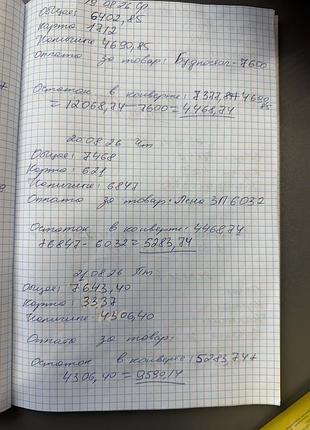 19.08.26 Ср
Общее: 6402,85
Карта 1712
Наличные 4690,85
Оплата за товар: Будпостач-7600
Остаток в конверте: 7377,8 + 4690,85
= 12068,74 - 7600 = 4468,74
20.08.26 Чт
Общее: 7468
Карта: 621
Наличные: 6847
Оплата за товар: Лена ЗП 6032
Остаток в конверте: 4468,74
+6847 - 6032 = 5283,74
21.08.26 Пт
Общее: 7643,40
Карта: 3337
Наличные 4306,40
Оплата за товар:
Остаток в конверте: 5283,74+
4306,40 = 9590,14